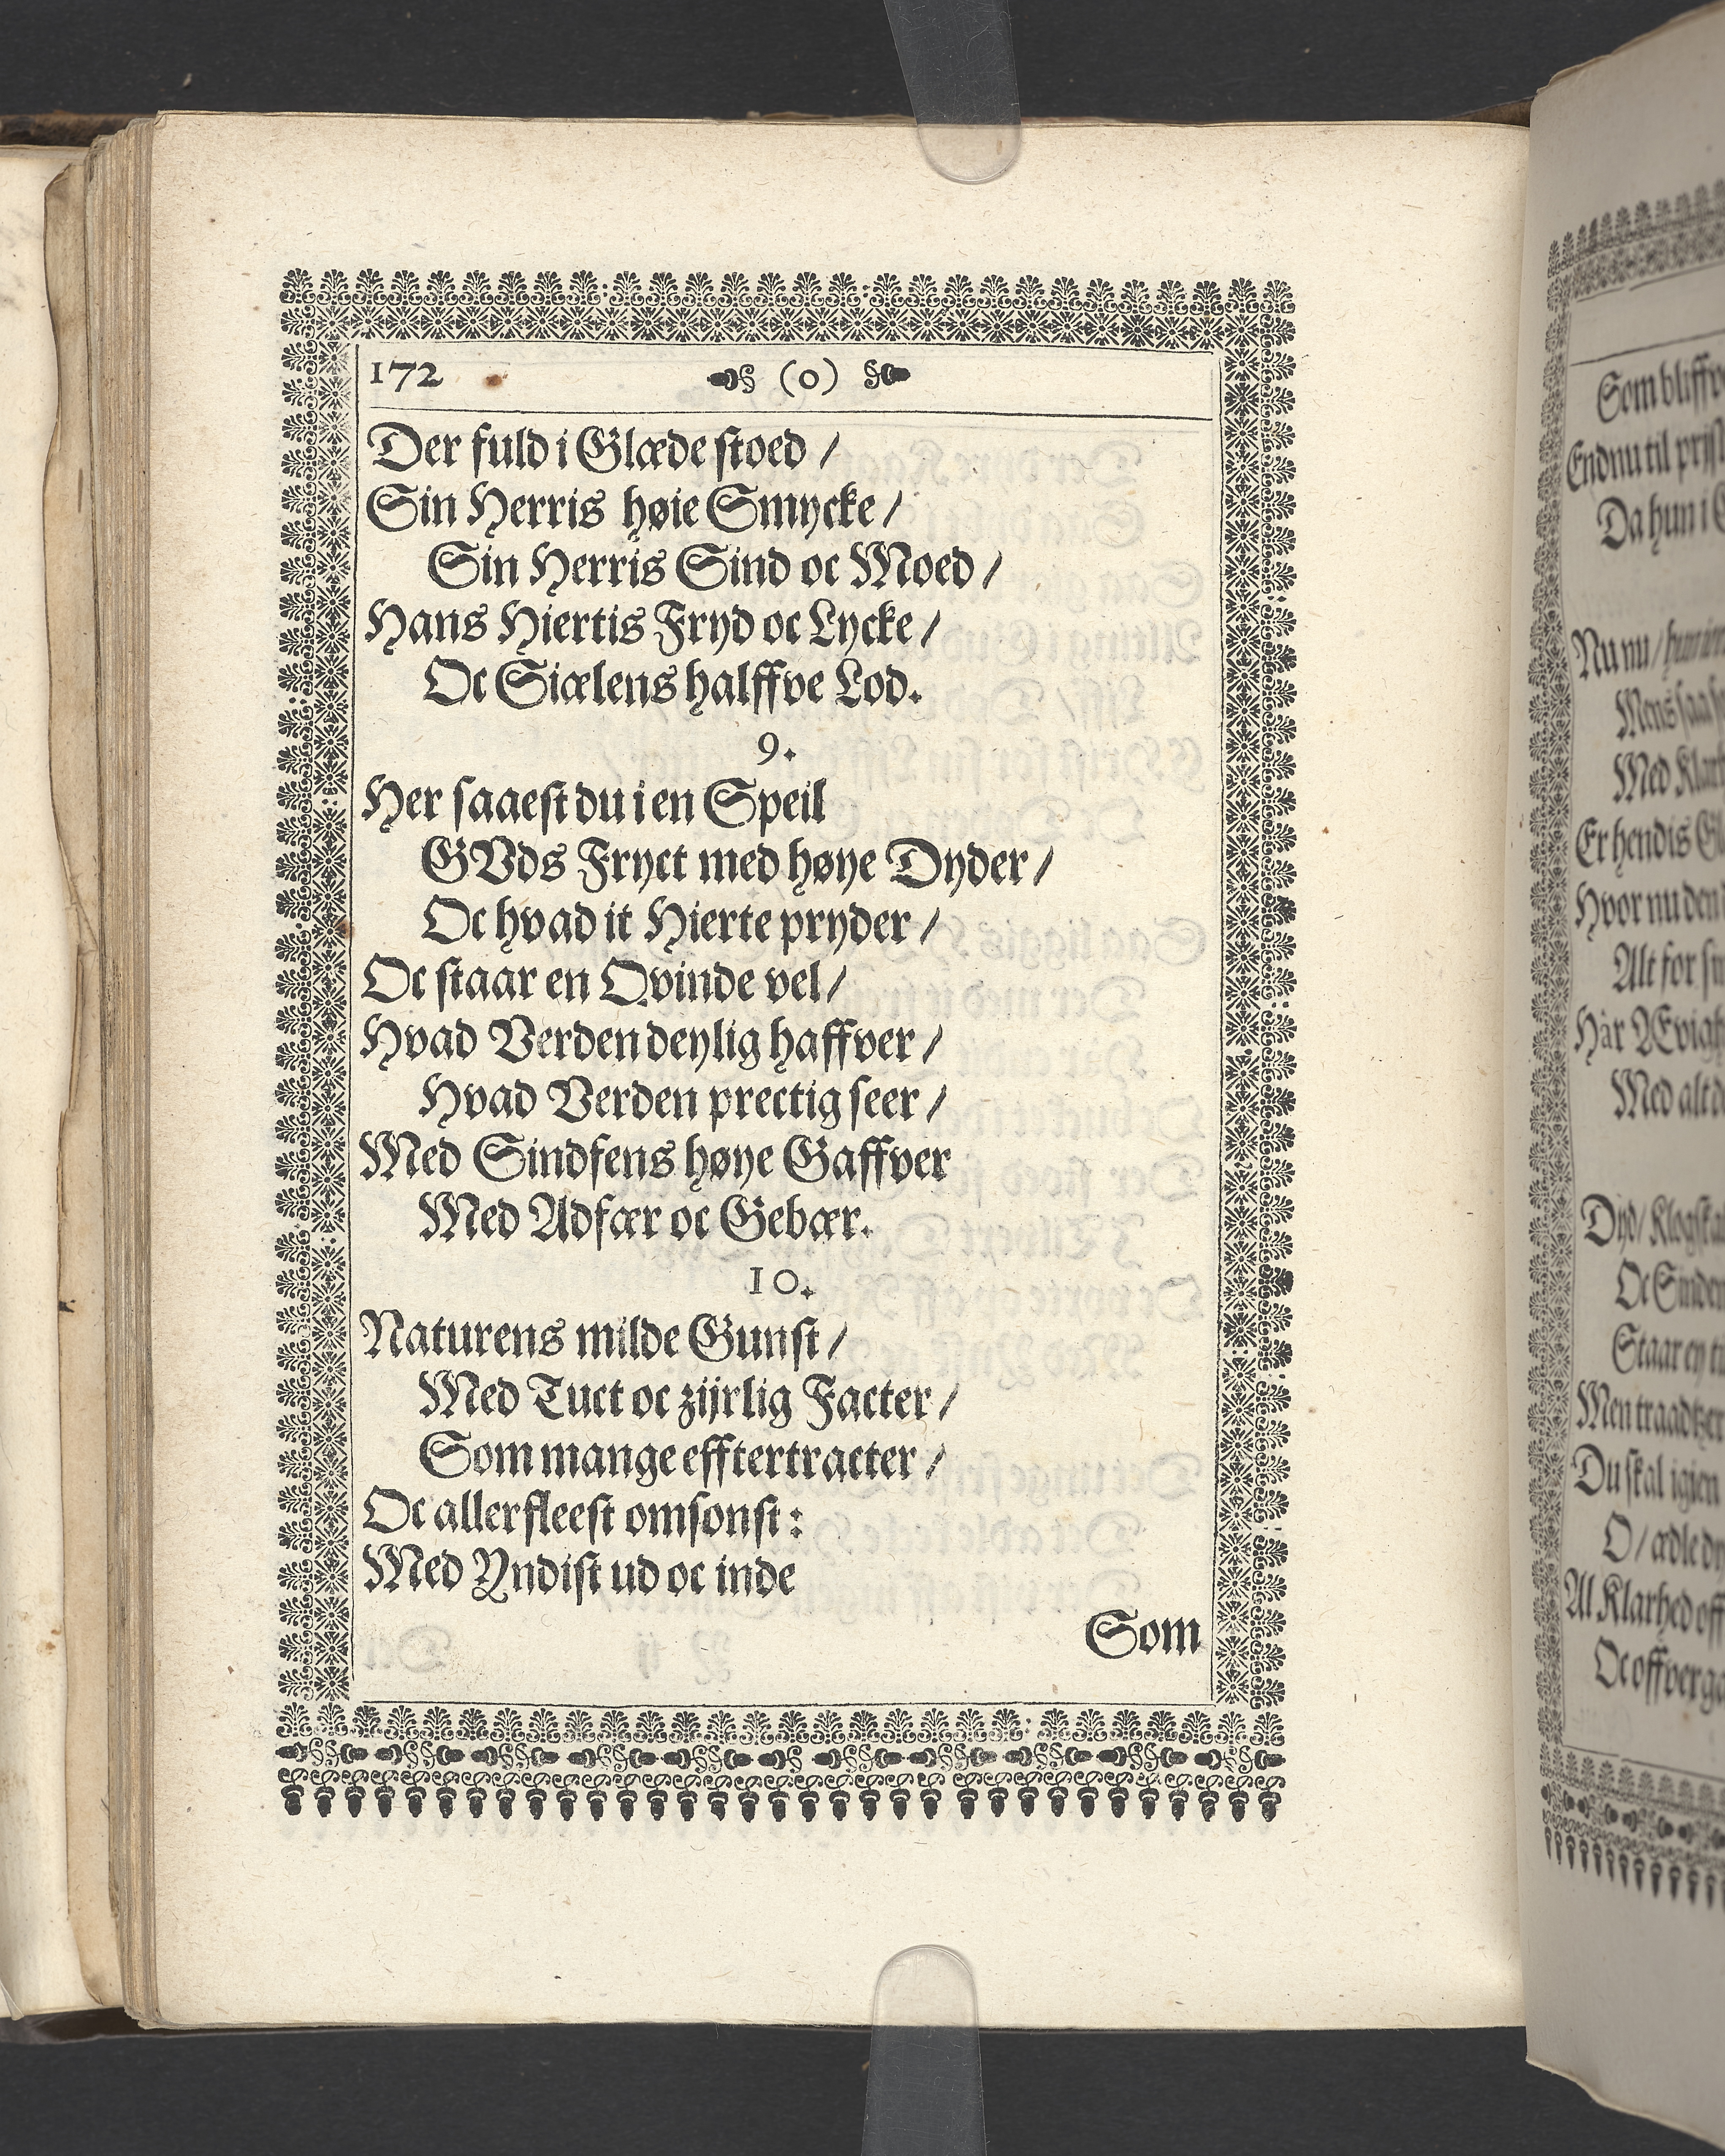 172 (0)
Der fuld i Glæde stoed /
Sin Herris høie Smycke /
Sin Herris Sind oc Moed /
Hans Hiertis Fryd oc Lycke /
Oc Siælens halffve Lod.
9.
Her saaest du i en Speil
GVds Fryct med høye Dyder /
Oc hvad it Hierte pryder /
Oc staar en Qvinde vel /
Hvad Verden deylig haffver /
Hvad Verden prectig seer /
Med Sindsens høye Gaffver
Med Adfær oc Gebær.
10.
Naturens milde Gunst /
Med Tuct oc zijrlig Facter /
Som mange efftertracter /
Oc allerfleest omsonst:
Med Yndist ud oc inde
Som
Endnu til
Da hun i
Nu nu /
Mens saa
Med
Er hendis
Hvor nu den
Alt for
Hår Ævigh
Med alt
Dyd /
Oc
Staar ey
Men
Du skal igien
O / ædle
Al Klarhed
Oc